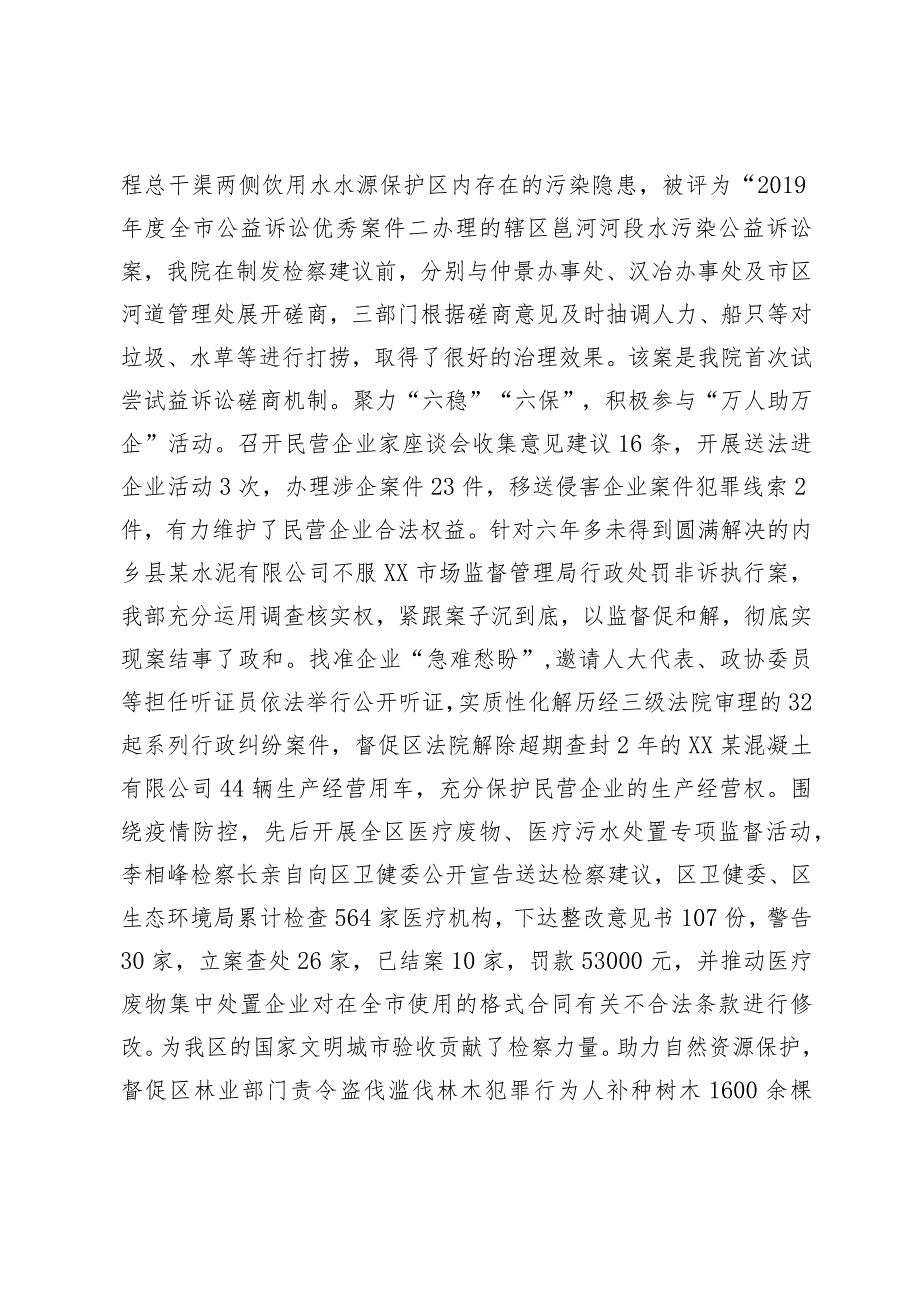 程总干渠两侧饮用水水源保护区内存在的污染隐患，被评为“2019
年度全市公益诉讼优秀案件二办理的辖区邕河河段水污染公益诉讼
案，我院在制发检察建议前，分别与仲景办事处、汉冶办事处及市区
河道管理处展开磋商，三部门根据磋商意见及时抽调人力、船只等对
垃圾、水草等进行打捞，取得了很好的治理效果。该案是我院首次试
尝试益诉讼磋商机制。聚力“六稳”“六保”，积极参与“万人助万
企”活动。召开民营企业家座谈会收集意见建议 16 条，开展送法进
企业活动 3 次，办理涉企案件 23 件，移送侵害企业案件犯罪线索 2
件，有力维护了民营企业合法权益。针对六年多未得到圆满解决的内
乡县某水泥有限公司不服 XX 市场监督管理局行政处罚非诉执行案，
我部充分运用调查核实权，紧跟案子沉到底，以监督促和解，彻底实
现案结事了政和。找准企业“急难愁盼”,邀请人大代表、政协委员
等担任听证员依法举行公开听证,实质性化解历经三级法院审理的 32
起系列行政纠纷案件，督促区法院解除超期查封 2 年的 XX 某混凝土
有限公司 44 辆生产经营用车，充分保护民营企业的生产经营权。围
绕疫情防控，先后开展全区医疗废物、医疗污水处置专项监督活动，
李相峰检察长亲自向区卫健委公开宣告送达检察建议，区卫健委、区
生态环境局累计检查 564 家医疗机构，下达整改意见书 107 份，警告
30 家，立案查处 26 家，已结案 10 家，罚款 53000 元，并推动医疗
废物集中处置企业对在全市使用的格式合同有关不合法条款进行修
改。为我区的国家文明城市验收贡献了检察力量。助力自然资源保护，
督促区林业部门责令盗伐滥伐林木犯罪行为人补种树木 1600 余棵